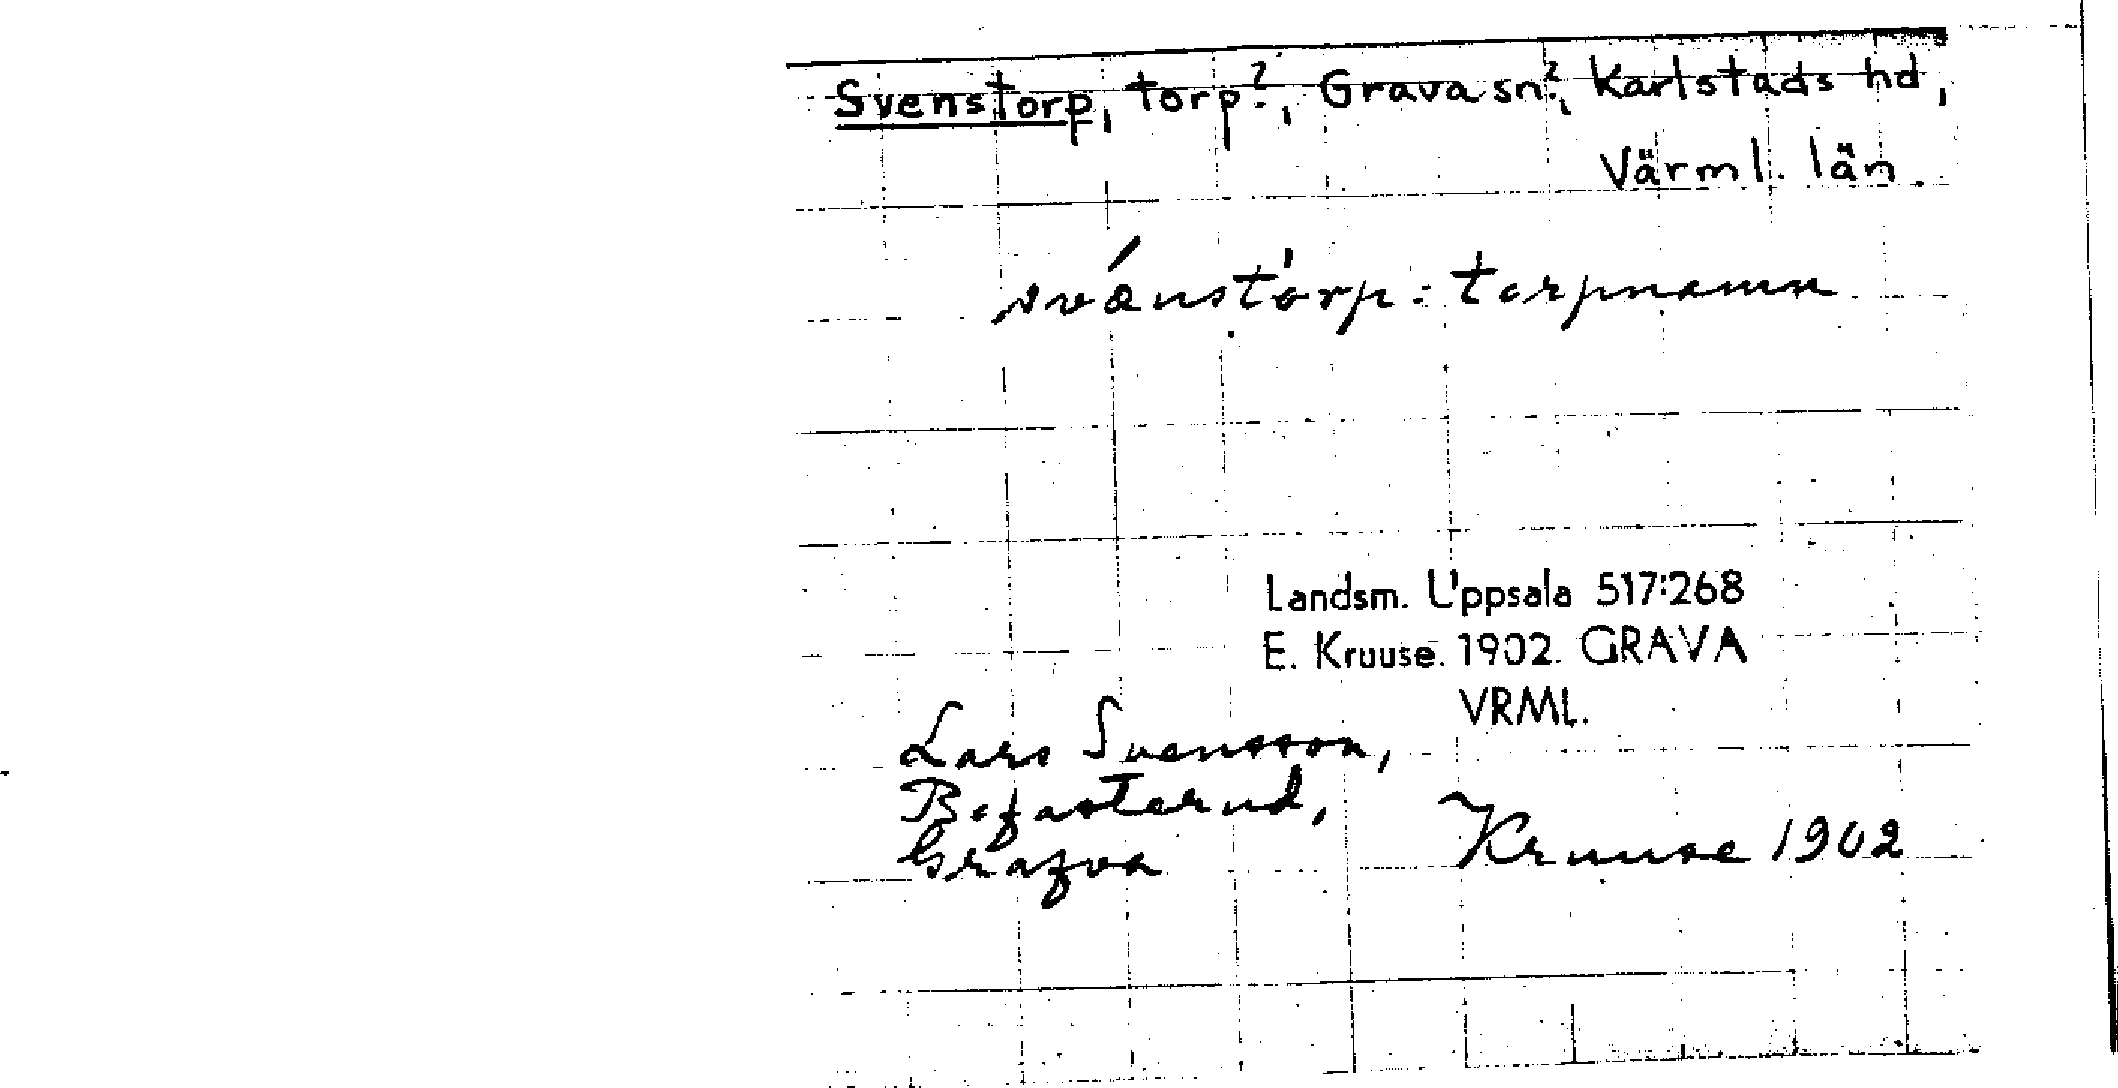 Svenstorp, torp?, Grava sn?, Karlstads hd,
Värml. län
svánstórp: torpnamn
Landsm. Uppsala 517:268
E. Kruuse. 1902. GRAVA
VRML.
Lars Svensson,
Grafva
Kruuse 1902